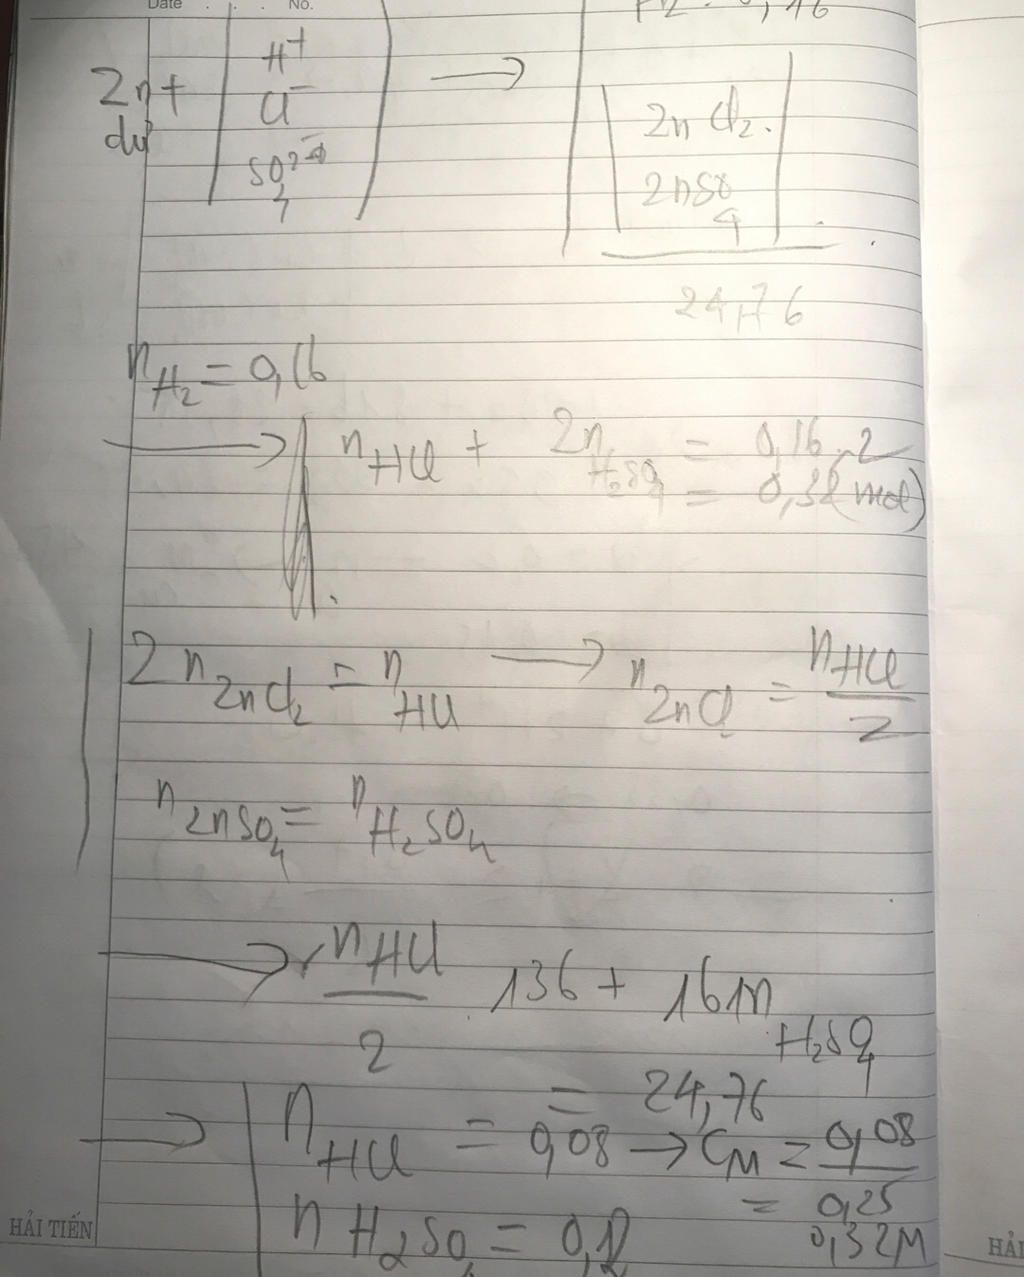 Date . . . No.
H2 : 0,16
Zn + | H⁺ | ⟶ | ZnCl₂.
dư | Cl⁻ |
| SO₄²⁻ | | ZnSO₄
24,76
n_H₂ = 0,16
⟶ n_HCl + 2n_H₂SO₄ = 0,16.2
= 0,32 (mol)
2n_ZnCl₂ = n_HCl ⟶ n_ZnCl = n_HCl / 2
n_ZnSO₄ = n_H₂SO₄
⟶ n_HCl / 2 136 + 161n_H₂SO₄
= 24,76
⟶ n_HCl = 0,08 → C_M = 0,08 / 0,25
= 0,32M
n_H₂SO₄ = 0,12
HẢI TIẾN
HẢI